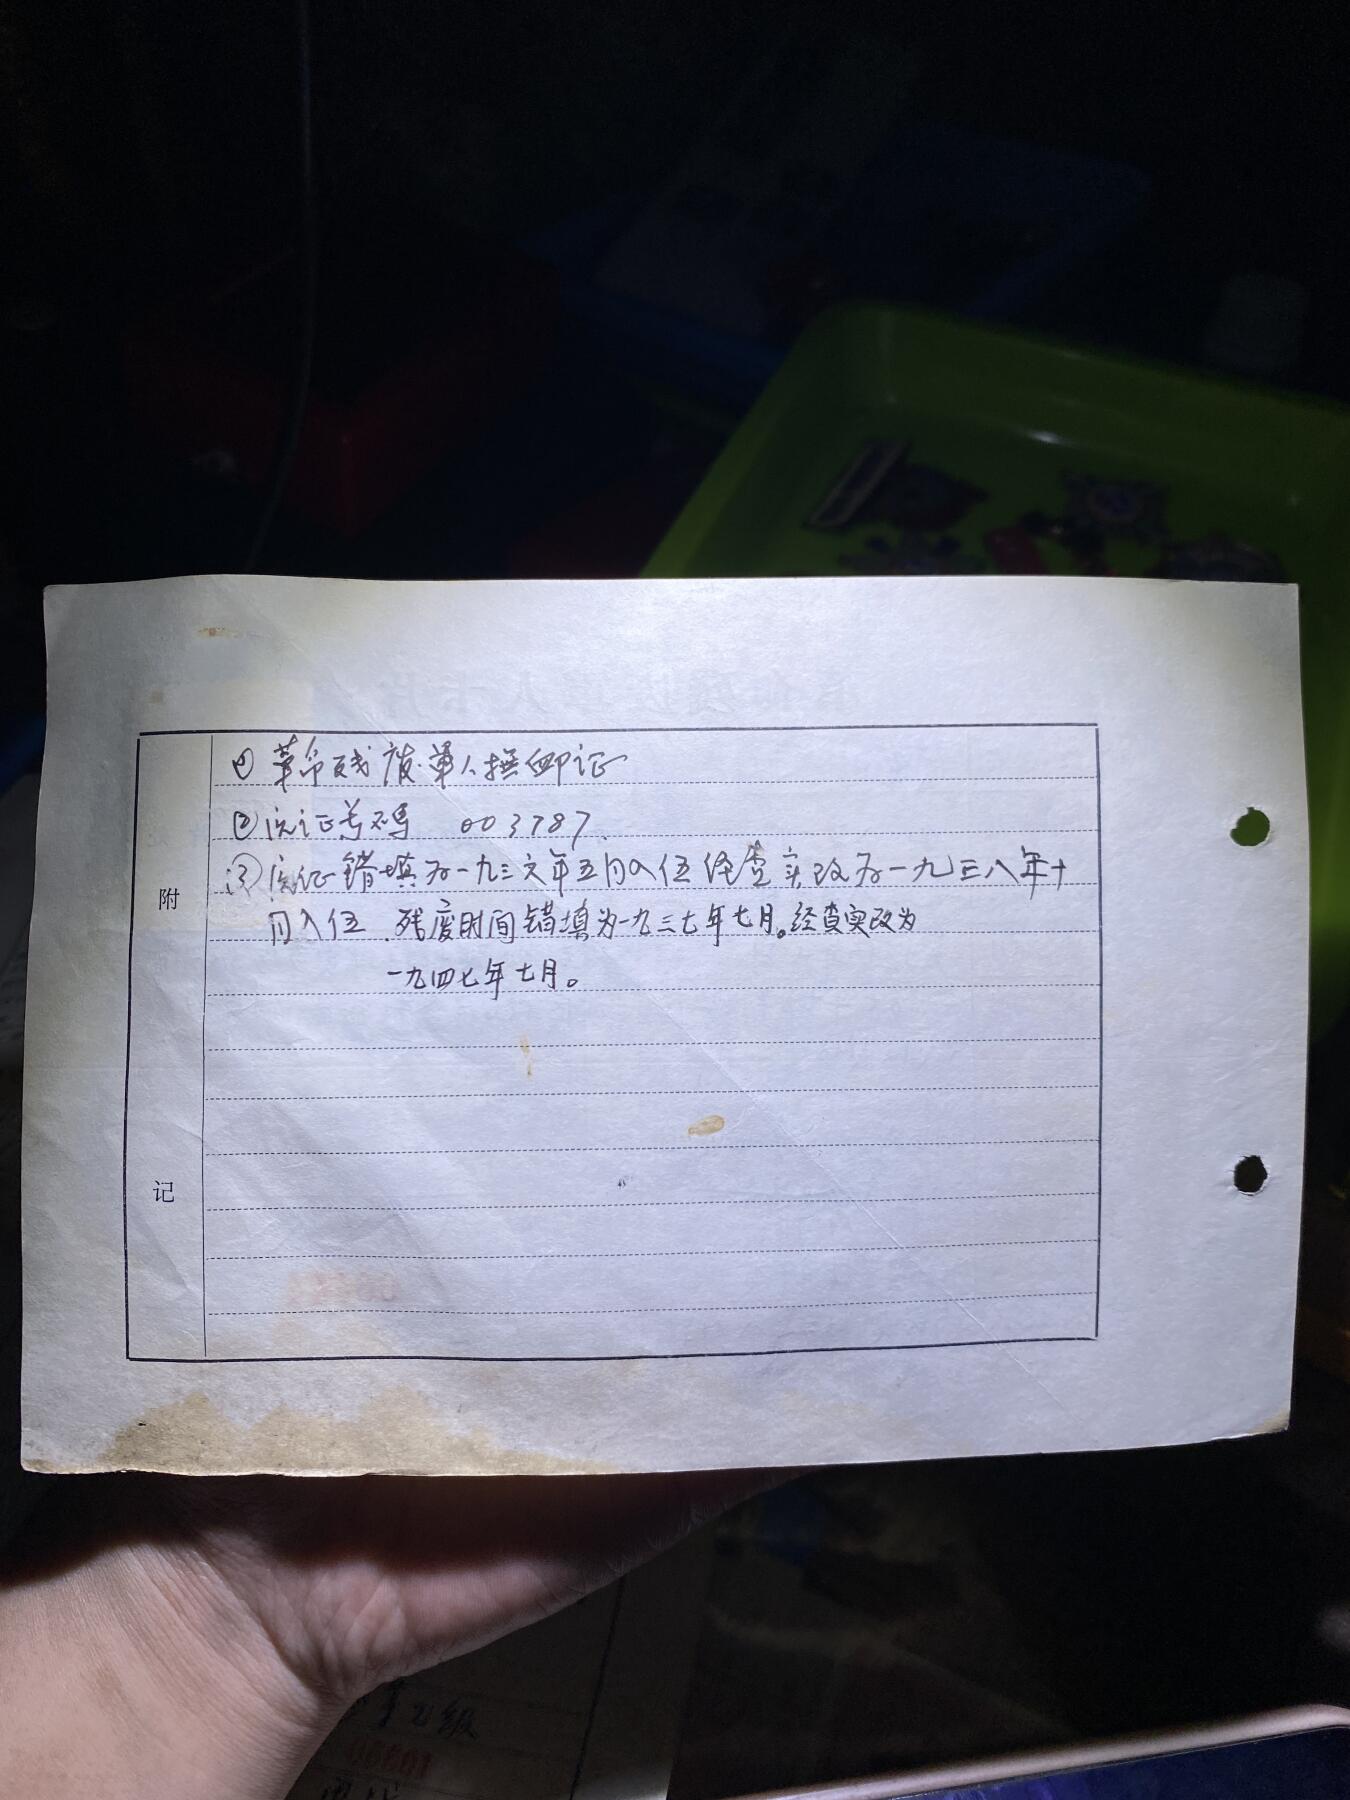 附记
① 革命残废军人抚卹证
② 原证号码 003787.
③ 原证错填为一九三六年五月入伍经查实改为一九三八年十
月入伍.残废时间错填为一九三七年七月。经查实改为
一九四七年七月。